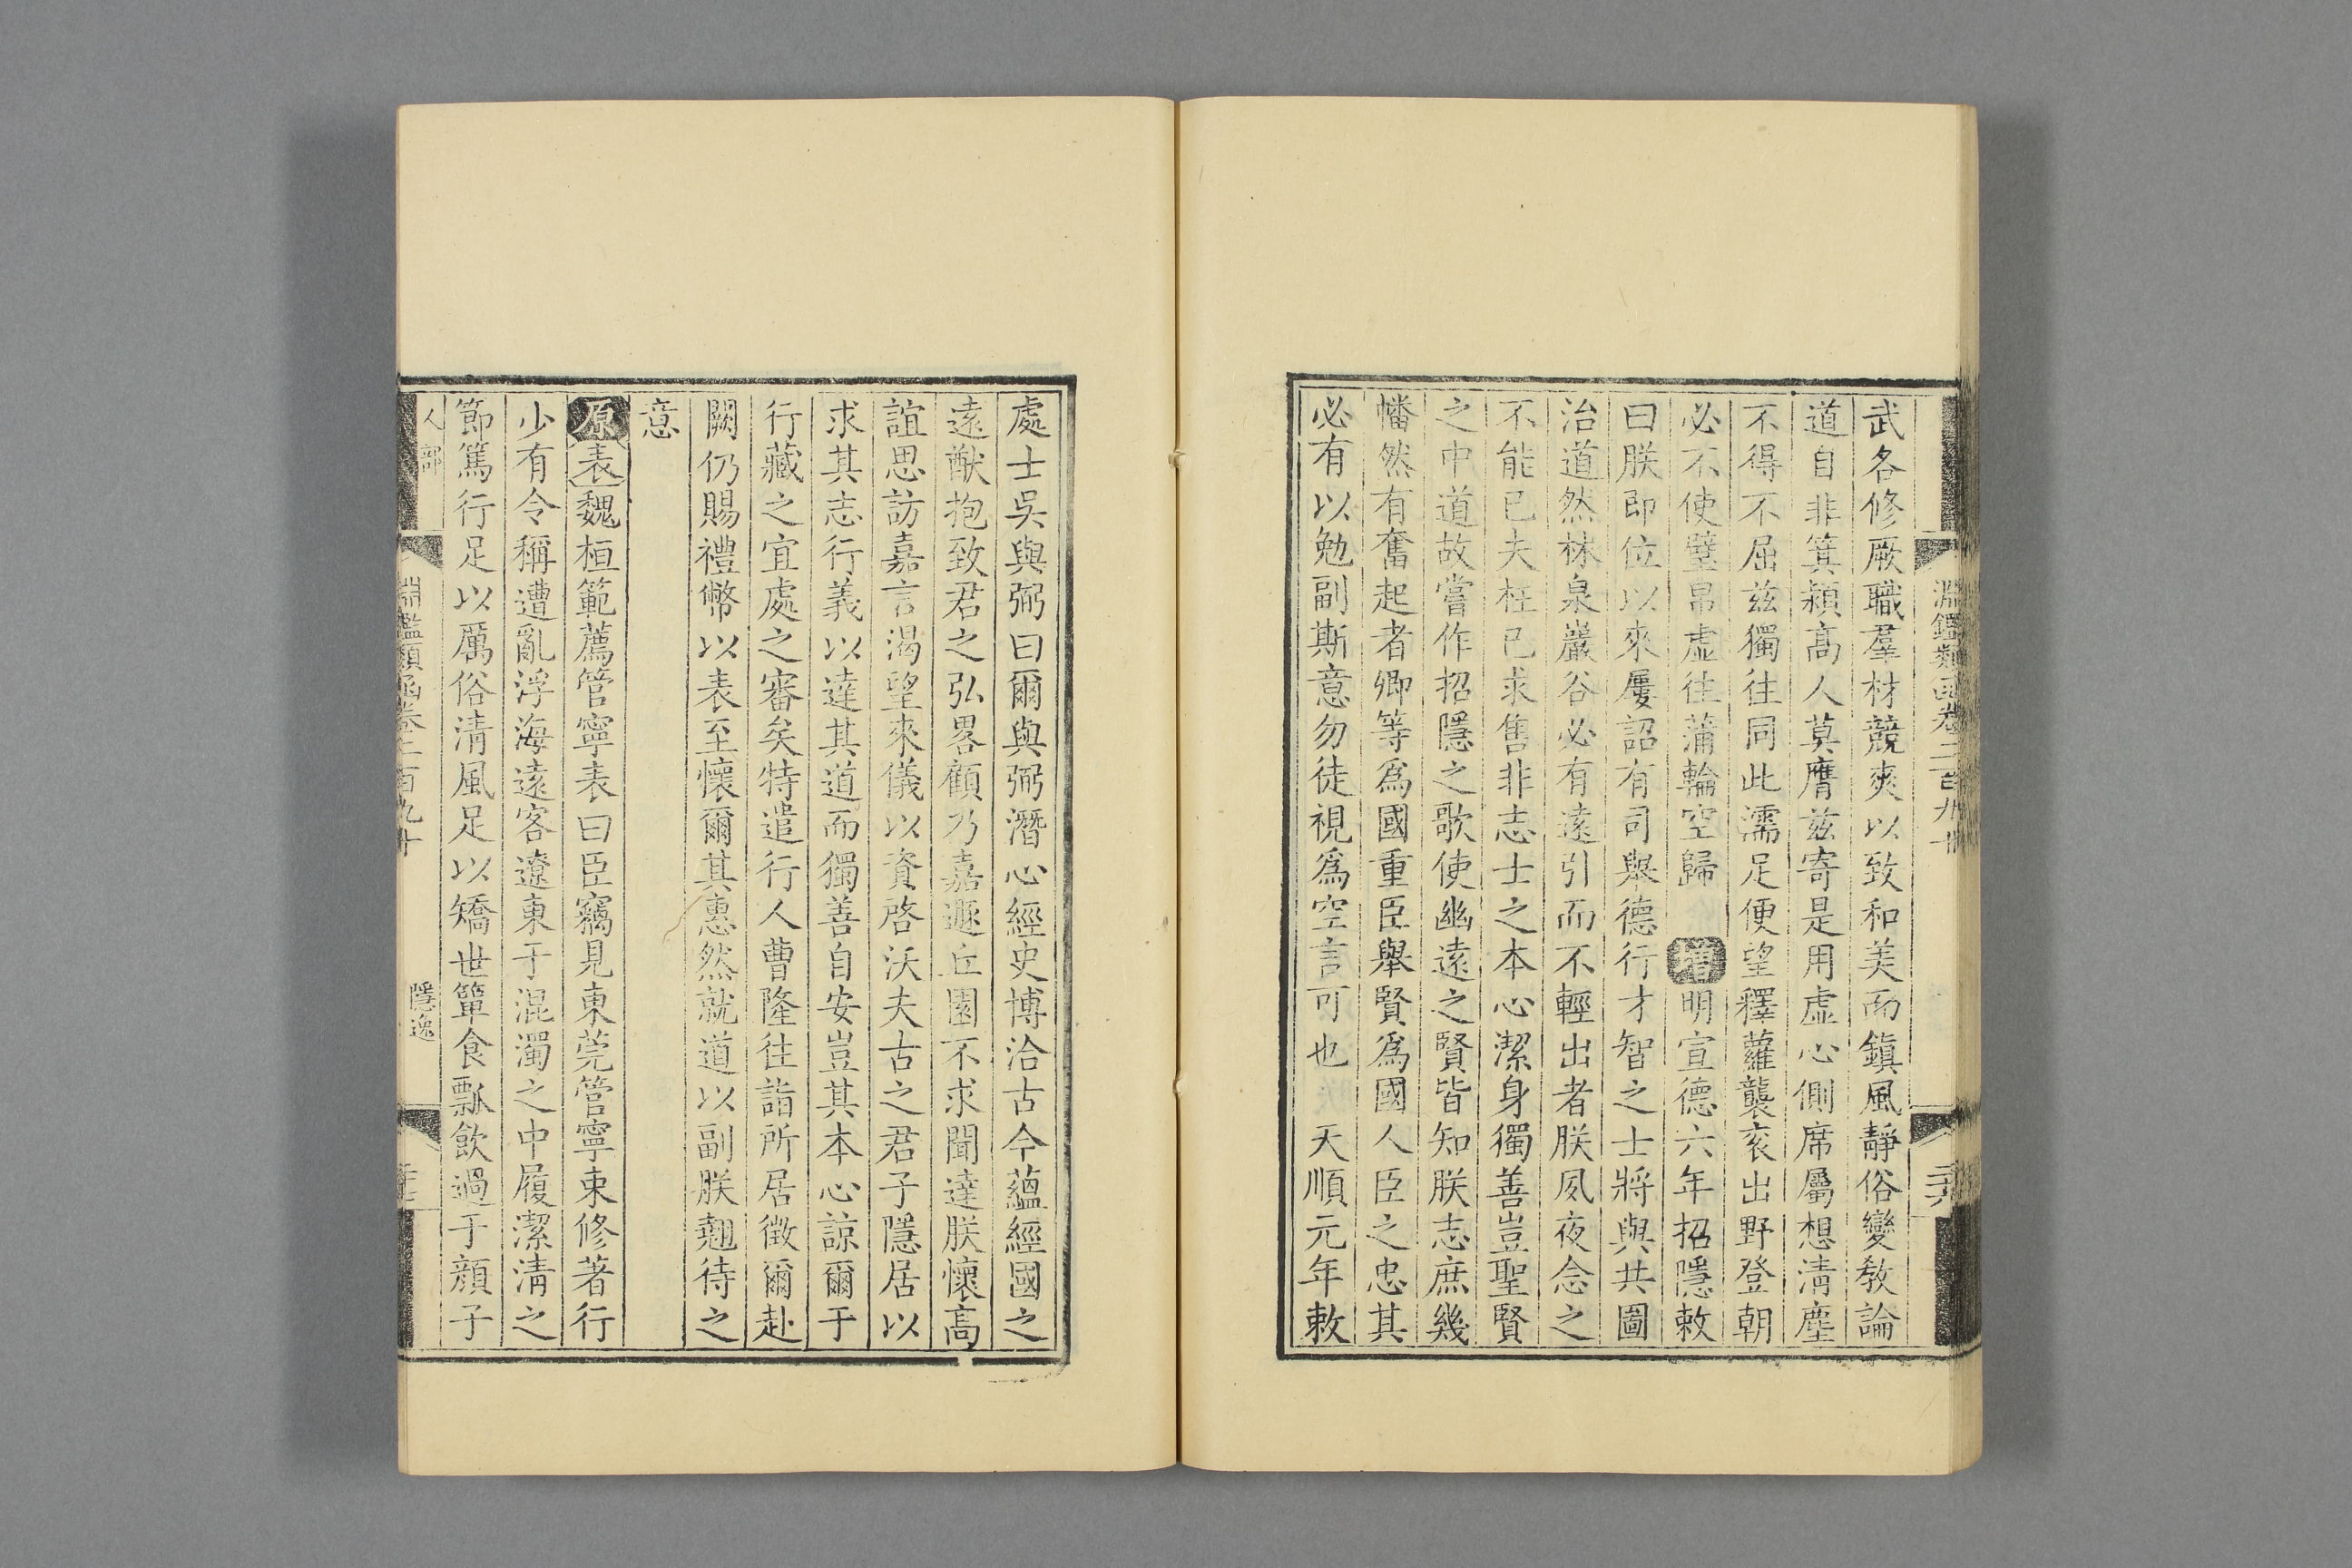 淵鑑類函卷二百九十
武各修厥職羣材競爽以致和美而鎮風靜俗變敎論
道自非箕潁高人莫膺兹寄是用虛心側席屬想淸塵
不得不屈兹獨往同此濡足便望釋蘿襲衮出野登朝
必不使璧帛虛往蒲輪空歸 增明宣德六年招隱敕
曰朕即位以來屢詔有司舉德行才智之士將與共圖
治道然林泉巖谷必有遠引而不輕出者朕夙夜念之
不能已夫枉已求售非志士之本心潔身獨善豈聖賢
之中道故嘗作招隱之歌使幽遠之賢皆知朕志庶幾
幡然有奮起者卿等爲國重臣舉賢爲國人臣之忠其
必有以勉副斯意勿徒視爲空言可也 天順元年敕
處士吳與弼曰爾與弼潛心經史博洽古今蘊經國之
遠猷抱致君之弘畧顧乃嘉遯丘園不求聞達朕懷高
誼思訪嘉言渴望來儀以資啓沃夫古之君子隱居以
求其志行義以達其道而獨善自安豈其本心諒爾于
行藏之宜處之審矣特遣行人曹隆往詣所居徵爾赴
闕仍賜禮幣以表至懷爾其惠然就道以副朕翹待之
意
原表魏桓範薦管寧表曰臣竊見東莞管寧束修著行
少有令稱遭亂浮海遠客遼東于混濁之中履潔淸之
節篤行足以厲俗淸風足以矯世簞食瓢飮過于顏子
人部 淵鑑類函卷二百九十 隱逸